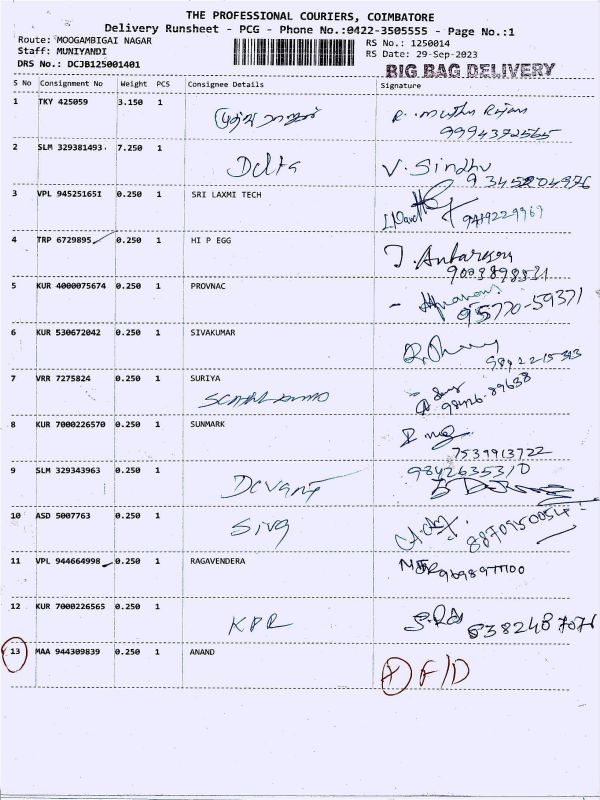 THE PROFESSIONAL COURIERS, COIMBATORE
Delivery Runsheet - PCG - Phone No.:0422-3505555 - Page No.:1
Route: MOOGAMBIGAI NAGAR
RS No.: 1250014
Staff: MUNIYANDI
RS Date: 29-Sep-2023
DRS No.: DCJB125001401
BIG BAG DELIVERY
S No Consignment No Weight PCS Consignee Details Signature
1 TKY 425059 3.150 1
9994372565
2 SLM 329381493 7.250 1 Delta V. Sindhu
9345204976
3 VPL 945251651 0.250 1 SRI LAXMI TECH
4 TRP 6729895 0.250 1 HI P EGG
5 KUR 4000075674 0.250 1 PROVNAC
95770-59371
6 KUR 530672042 0.250 1 SIVAKUMAR
7 VRR 7275824 0.250 1 SURIYA
98426-89638
8 KUR 7000226570 0.250 1 SUNMARK
7539913722
9 SLM 329343963 0.250 1
9842635310
10 ASD 5007763 0.250 1 Siva
11 VPL 944664998 0.250 1 RAGAVENDERA
12 KUR 7000226565 0.250 1 KPR
13 MAA 944309839 0.250 1 ANAND F/D